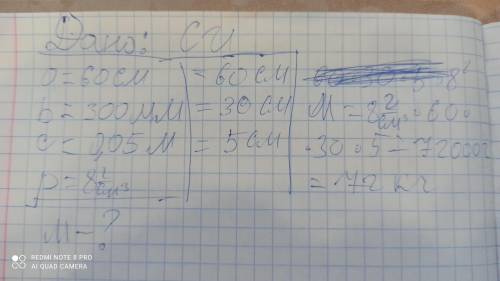 Дано: СИ
a = 60 см = 60 см
b = 300 мм = 30 см
c = 0,05 м = 5 см
p = 8 г/см³
M - ?
M = 8 г/см³ · 60 ·
· 30 · 5 = 72000 г
= 72 кг
REDMI NOTE 8 PRO
AI QUAD CAMERA